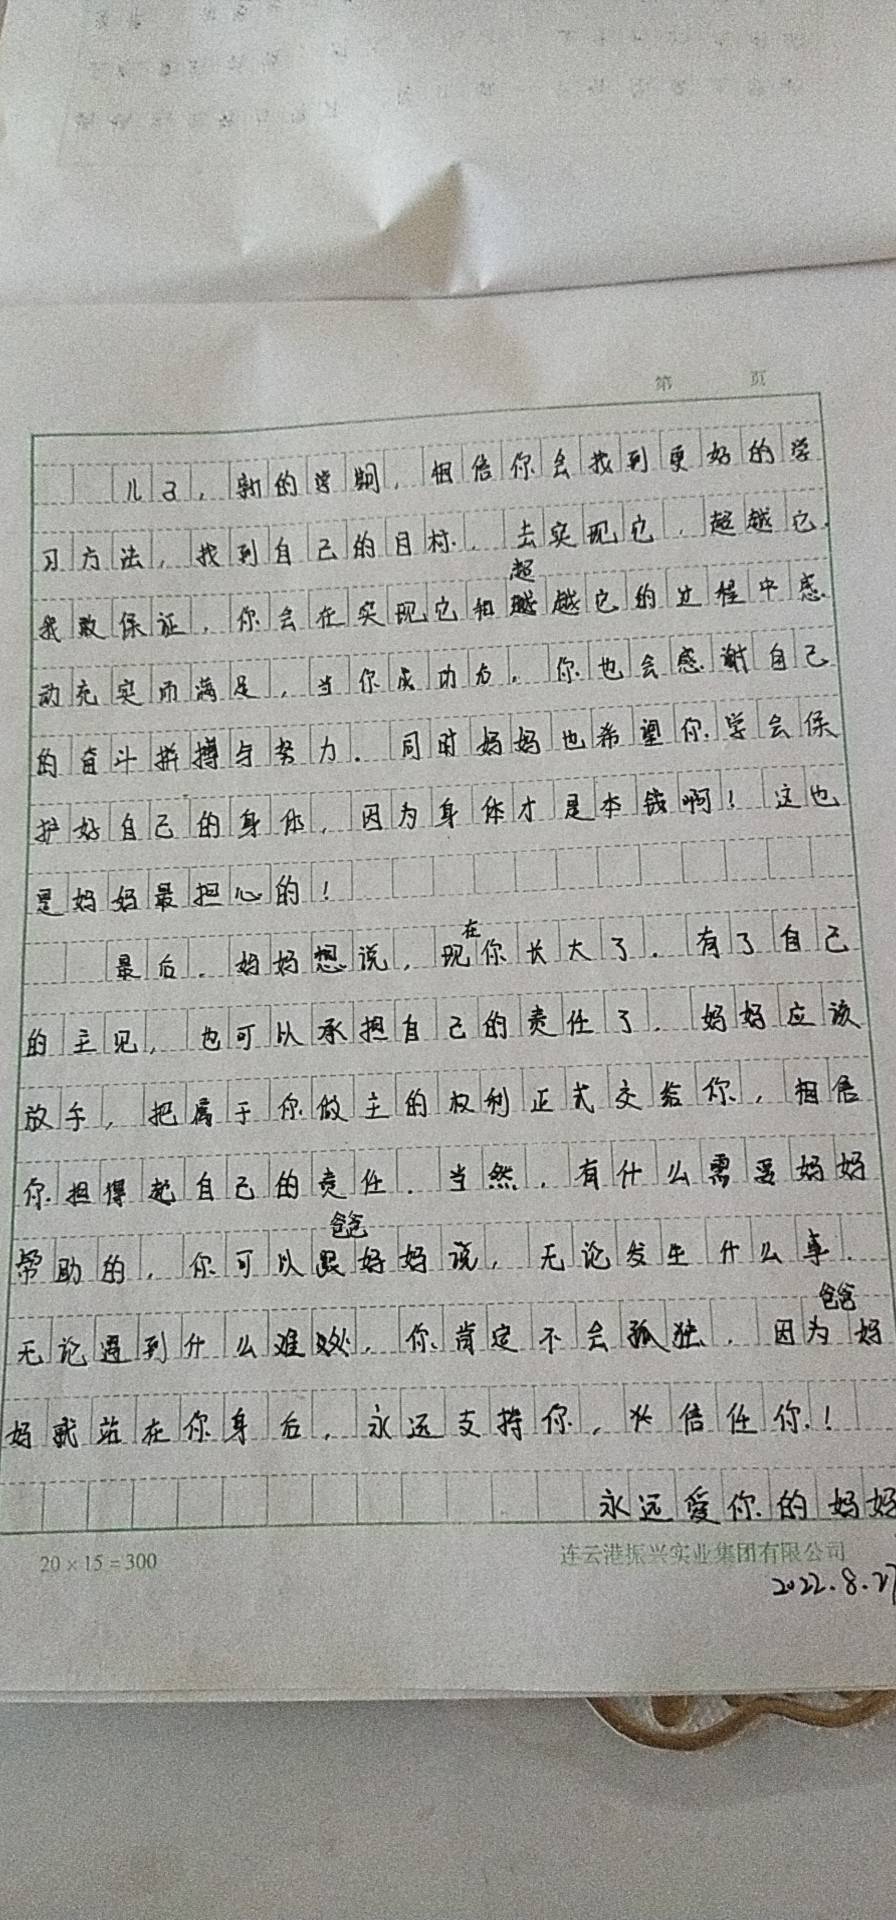 第 页
儿子，新的学期，相信你会找到更好的学
习方法，找到自己的目标，去实现它，超越它。
我敢保证，你会在实现它和超越它的过程中感
动充实而满足，当你成功后，你也会感谢自己
的奋斗拼搏与努力。同时妈妈也希望你学会保
护好自己的身体，因为身体才是本钱啊！这也
是妈妈最担心的！
最后，妈妈想说，现在你长大了，有了自己
的主见，也可以承担自己的责任了，妈妈应该
放手，把属于你做主的权利正式交给你，相信
你担得起自己的责任。当然，有什么需要妈妈
帮助的，你可以跟爸爸妈妈说，无论发生什么事，
无论遇到什么难处，你肯定不会孤独，因为爸爸妈
妈就站在你身后，永远支持你，信任你！
永远爱你的妈妈
20×15=300
连云港振兴实业集团有限公司
2022.8.27